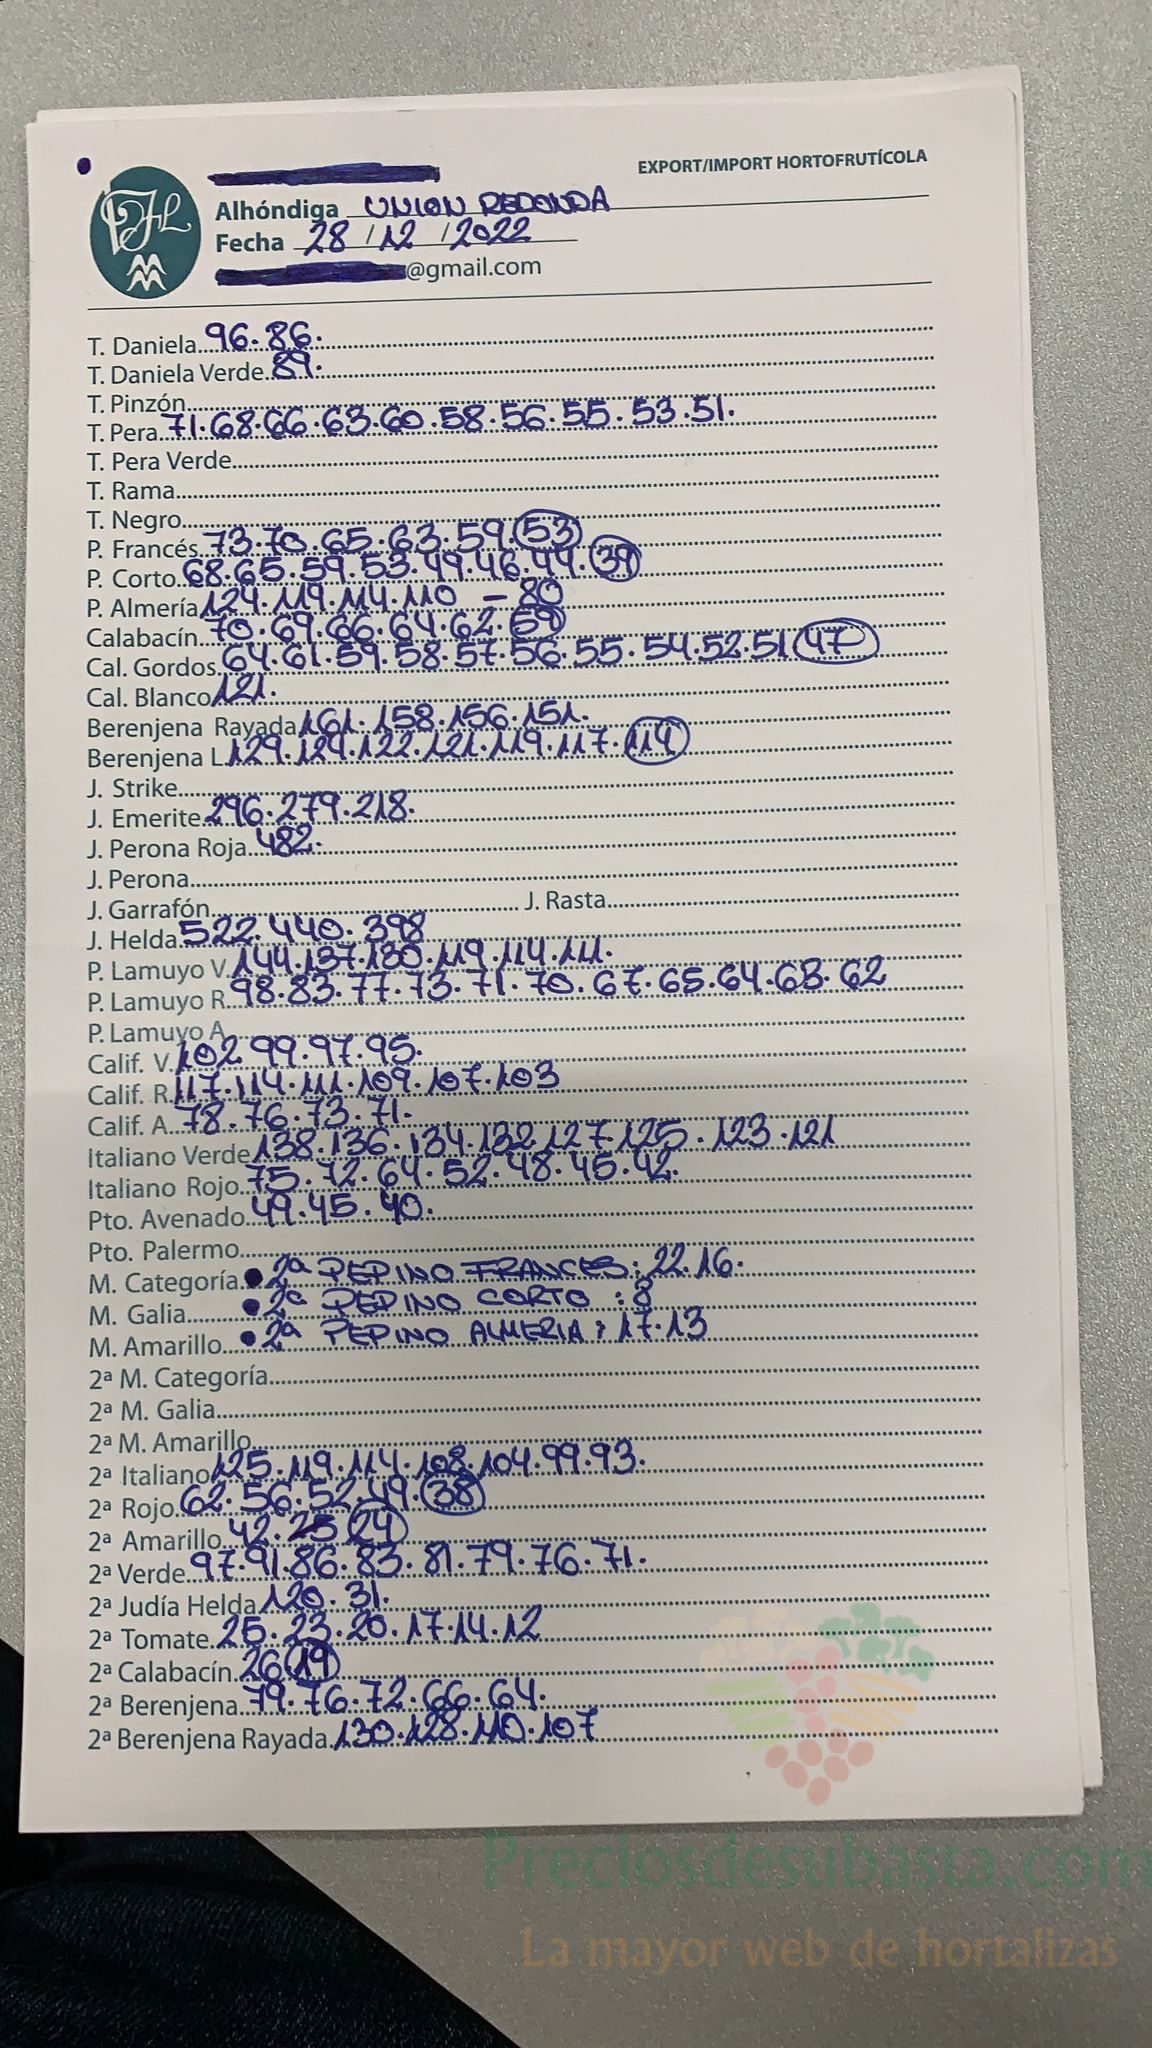 EXPORT/IMPORT HORTOFRUTÍCOLA
Alhóndiga UNION REDONDA
Fecha 28/12/2022
@gmail.com
T. Daniela 96.86.
T. Daniela Verde 89.
T. Pinzón
T. Pera 71.68.66.63.60.58.56.55.53.51.
T. Pera Verde
T. Rama
T. Negro
P. Francés 73.70.65.63.59.53
P. Corto 68.65.59.53.49.46.44.39
P. Almería 124.119.114.110 - 80
Calabacín 70.69.66.64.62.59
Cal. Gordos 64.61.59.58.57.56.55.54.52.51 47
Cal. Blanco 121.
Berenjena Rayada 161.158.156.151.
Berenjena L 129.124.122.121.119.117.114
J. Strike
J. Emerite 296.279.218.
J. Perona Roja 482.
J. Perona
J. Garrafón J. Rasta
J. Helda 522.440.398
P. Lamuyo V. 144.137.130.119.114.111.
P. Lamuyo R. 98.83.77.73.71.70.67.65.64.63.62
P. Lamuyo A
Calif. V. 102.99.97.95.
Calif. R. 117.114.111.109.107.103
Calif. A. 78.76.73.71.
Italiano Verde 138.136.134.132.127.125.123.121
Italiano Rojo 75.72.64.52.48.45.42.
Pto. Avenado 49.45.40.
Pto. Palermo
M. Categoría 2ª PEPINO FRANCES: 22.16.
M. Galia 2ª PEPINO CORTO : 8
M. Amarillo 2ª PEPINO ALMERIA: 17.13
2ª M. Categoría
2ª M. Galia
2ª M. Amarillo
2ª Italiano 125.119.114.108.104.99.93.
2ª Rojo 62.56.52.49.38
2ª Amarillo 42.25 24
2ª Verde 97.91.86.83.81.79.76.71.
2ª Judía Helda 120.31.
2ª Tomate 25.23.20.17.14.12
2ª Calabacín 26 19
2ª Berenjena 79.76.72.66.64.
2ª Berenjena Rayada 130.128.110.107
Preciosdesubasta.com
La mayor web de hortalizas